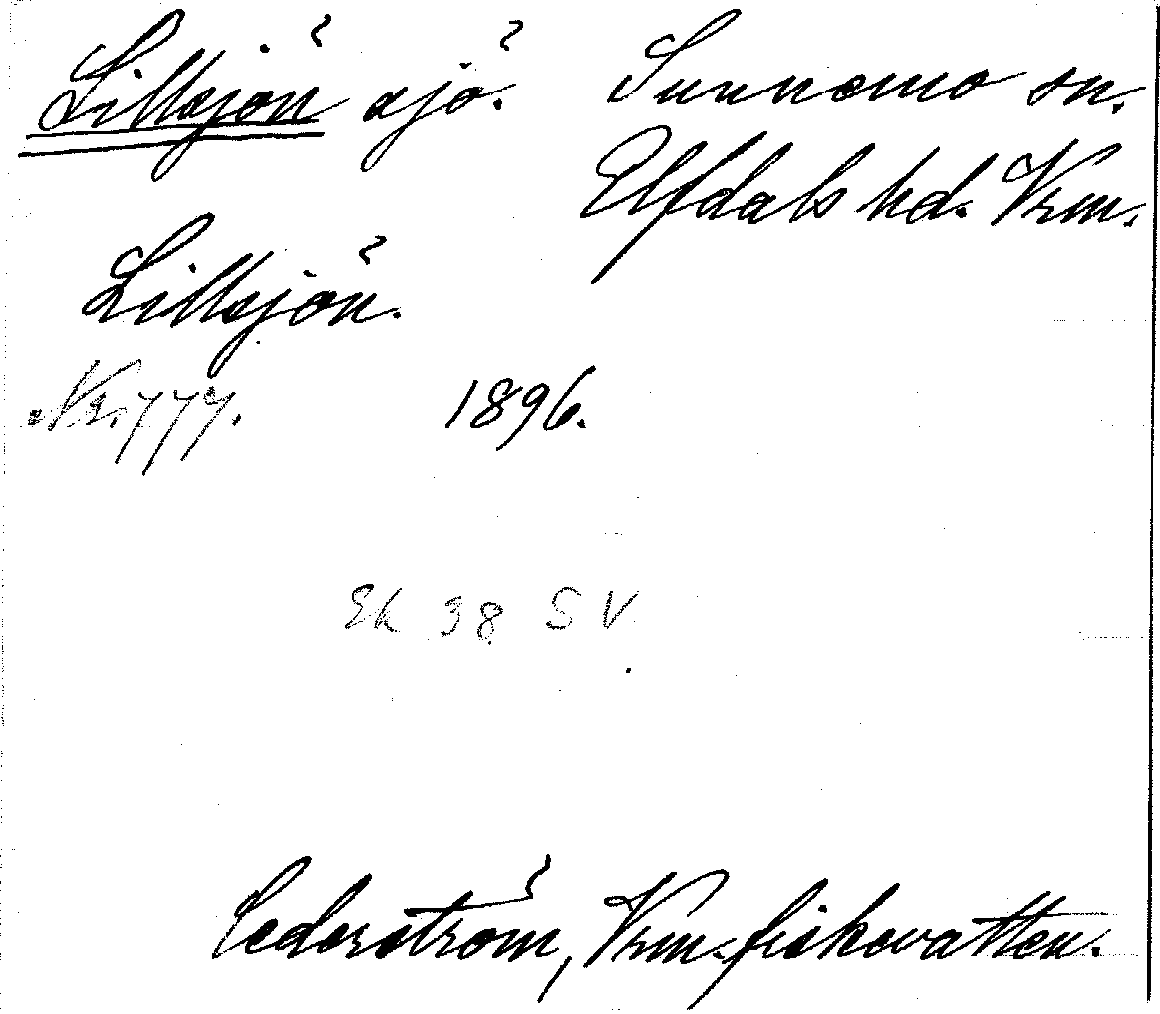 Lillsjön sjö. Sunnemo sn.
Elfdals hd. Vrm.
Lillsjön.
Nr. 777. 1896.
Ek 38 SV
Cederström, Vrm. fiskevatten.